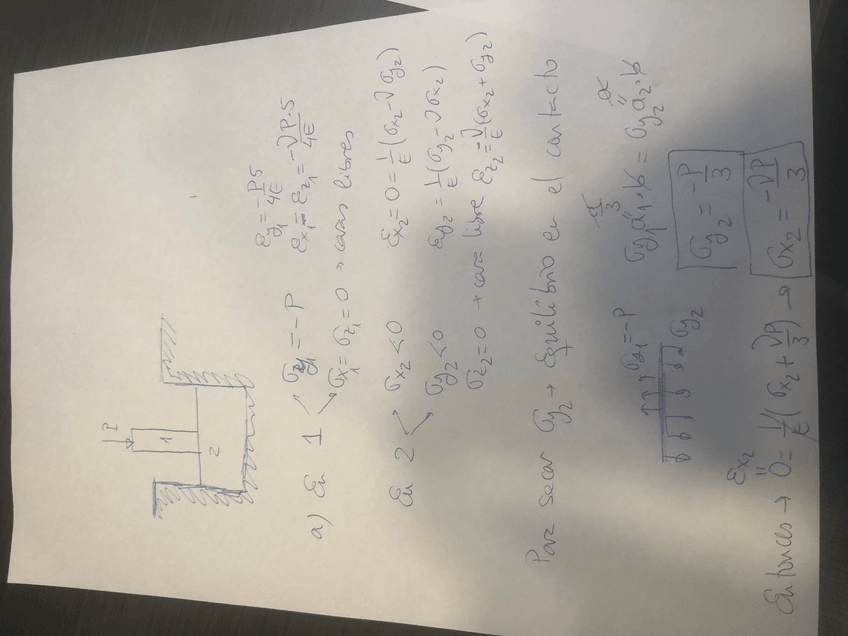 P
1
2
a) En 1 σy₁ = -P εy₁ = -P·5/4E
σx₁ = σz₁ = 0 → caras libres εx₁ = εz₁ = -√P·5/4E
En 2 σx₂ < 0 εx₂ = 0 = 1/E (σx₂ - √σy₂)
σy₂ < 0 εy₂ = 1/E (σy₂ - √σx₂)
σz₂ = 0 → cara libre εz₂ = -√/E (σx₂ + σy₂)
Para sacar σy₂ → Equilibrio en el contacto
σy₁ = -P
σy₂
a/3 a
σy₁ a₁·b = σy₂ a₂·b
σy₂ = -P/3
Entonces → εx₂ = 0 = 1/E (σx₂ + √P/3) → σx₂ = -√P/3